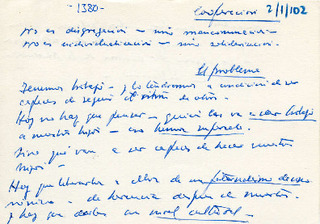 -1380-
Cooperación 2/1/102
No es disgregación - sino mancomunación -
No es individualización - sino solidarización.
El problema
Tenemos trabajo - y lo tendremos a condición de ser
capaces de seguir el ritmo de otros.
Hoy no hay que pensar - quién les va a dar trabajo
a nuestros hijos - eso
Sino qué van a ser capaces de hacer nuestros
hijos -
Hay que a ellos de un paternalismo
- de herencia después de muertos.
y hay que darles un nivel cultural